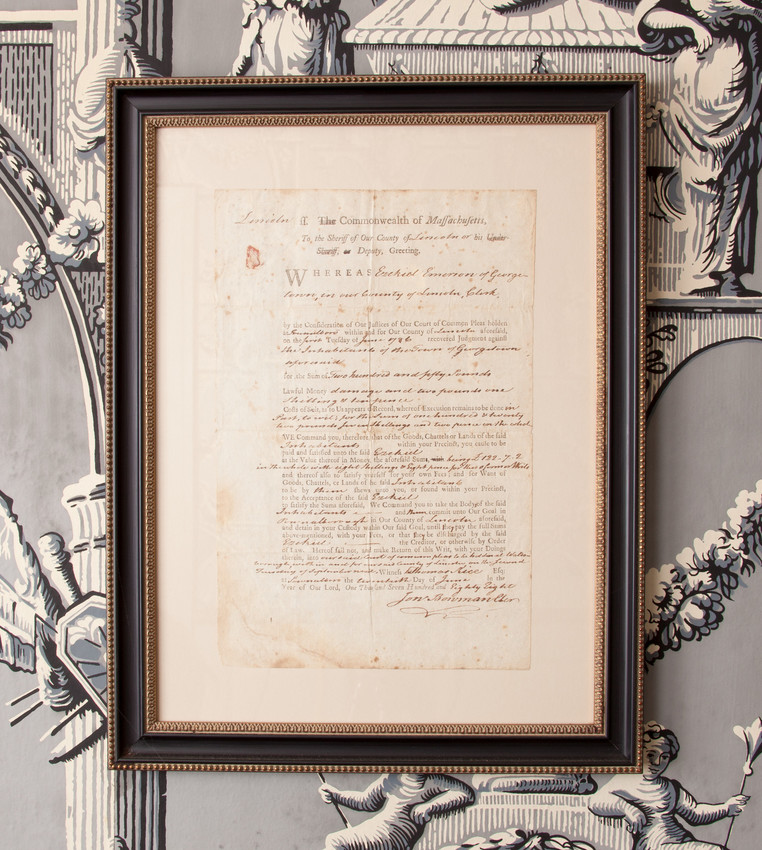 Lincoln ss The Commonwealth of Massachusetts,
To, the Sheriff of Our County of Lincoln or his Under
Sheriff, or Deputy, Greeting.
WHEREAS Ezekiel Emerson of George-
town, in our County of Lincoln, Clerk,
by the Consideration of Our Justices of Our Court of Common Pleas holden
at Pownalboro within and for Our County of Lincoln aforesaid,
on the first Tuesday of June 1786 recovered Judgment against
the Inhabitants of the Town of Georgetown
aforesaid
for the Sum of Two hundred and fifty Pounds
Lawful Money damage and two pounds one
shilling & ten pence
Costs of Suit, as to Us appears of Record, whereof Execution remains to be done in
Part, to wit, for the Sum of one hundred & twenty
two pounds seven shillings and two pence on the whole
WE Command you, therefore, that of the Goods, Chattels or Lands of the said
Inhabitants within your Precinct, you cause to be
paid and satisfied unto the said Ezekiel
at the Value thereof in Money, the aforesaid Sum, being £ 122-7-2
in the whole with eight shillings & eight pence for
and thereof also to satisfy yourself for your own Fees; and for Want of
Goods, Chattels, or Lands of the said Inhabitants
to be by them shewn unto you, or found within your Precinct,
to the Acceptance of the said Ezekiel
to satisfy the Sums aforesaid, We Command you to take the Body of the said
Inhabitants and them commit unto Our Goal in
Pownalborough in Our County of Lincoln, aforesaid,
and detain in your Custody within Our said Goal, until they pay the full Sums
above-mentioned, with your Fees, or that they be discharged by the said
Ezekiel the Creditor, or otherwise by Order
of Law. Hereof fail not, and make Return of this Writ, with your Doings
therein, into our said Court of common pleas to be holden at
within and for our County of Lincoln on the second
Tuesday of September next Witness Thomas Rice Esq;
the twentieth Day of June in the
Year of Our Lord, One Thousand Seven Hundred and Eighty Eight
Jon. Bowman Cler